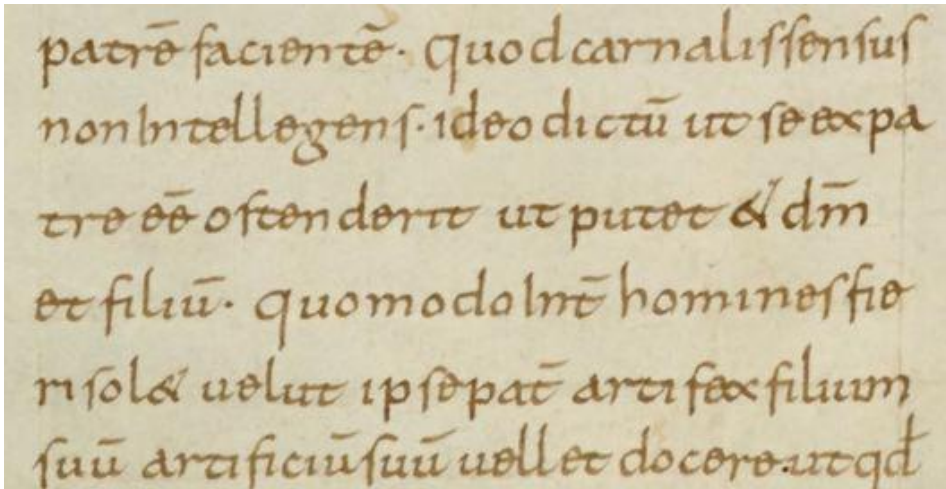 patrē facientē· quod carnalis sensus
non Intellegens· ideo dictū ut se ex pa
tre eē ostenderit ut putet & dm̄
et filiū· quomodo Int̄ homines fie
ri sol& uelut ipse pat̄ artifex filium
suū artificiū suū uellet docere· ut qđ